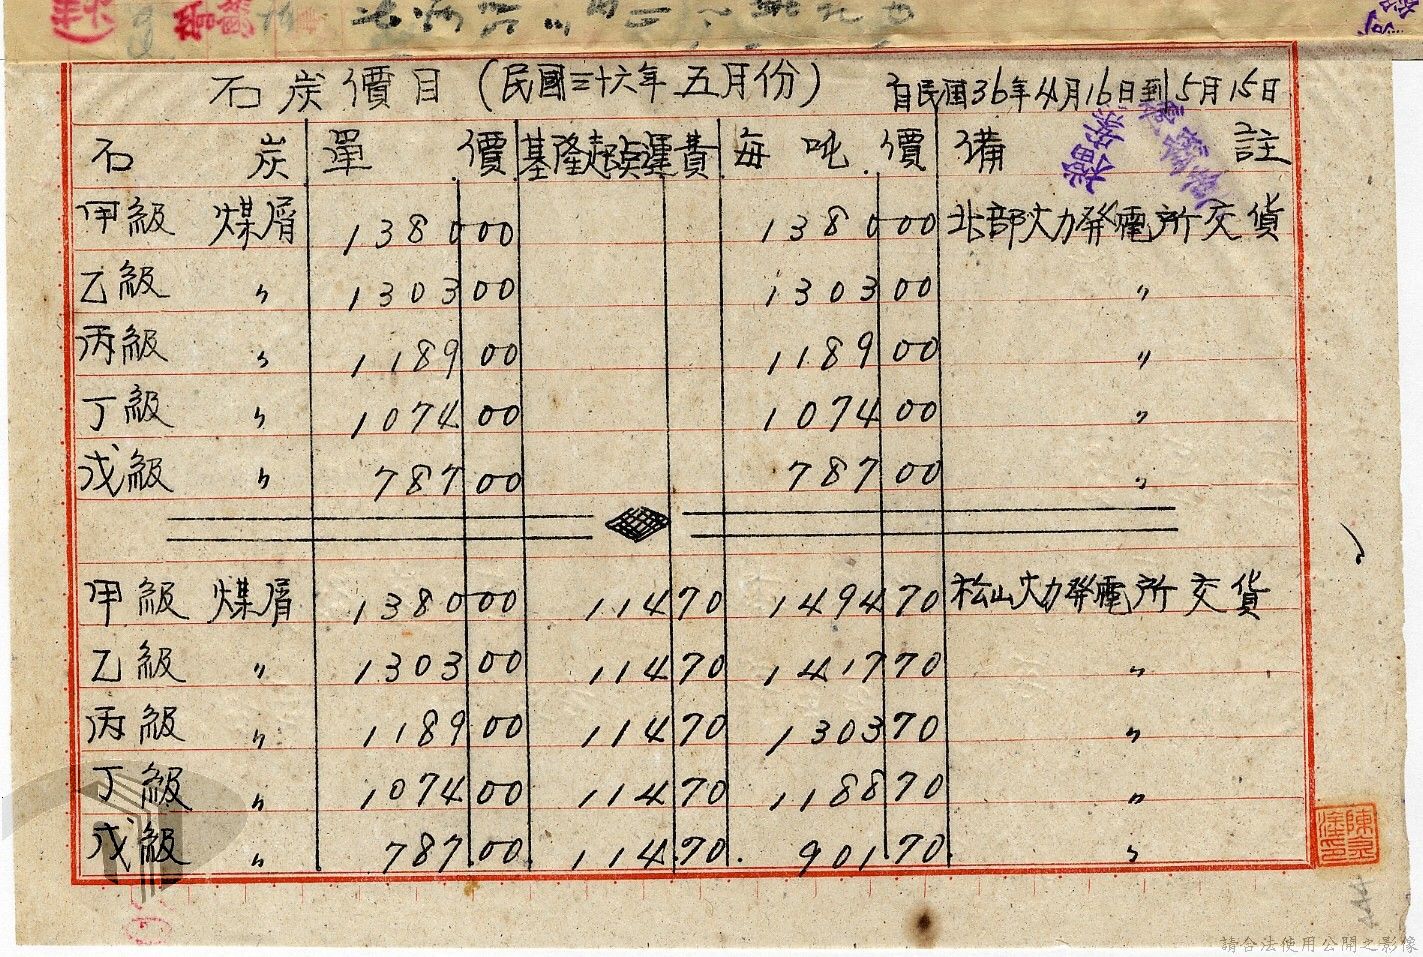 石炭價目(民國三十六年五月份) 自民國36年4月16日到5月15日
石炭 單價 基隆起点運費 每吨價 備註
甲級 煤屑 1380 00 1380 00 北部火力發電所交貨
乙級 〃 1303 00 1303 00 〃
丙級 〃 1189 00 1189 00 〃
丁級 〃 1074 00 1074 00 〃
戊級 〃 787 00 787 00 〃
甲級 煤屑 1380 00 114 70 1494 70 松山火力發電所交貨
乙級 〃 1303 00 114 70 1417 70 〃
丙級 〃 1189 00 114 70 1303 70 〃
丁級 〃 1074 00 114 70 1188 70 〃
戊級 〃 787 00 114 70 901 70 〃
請合法使用公開之影像